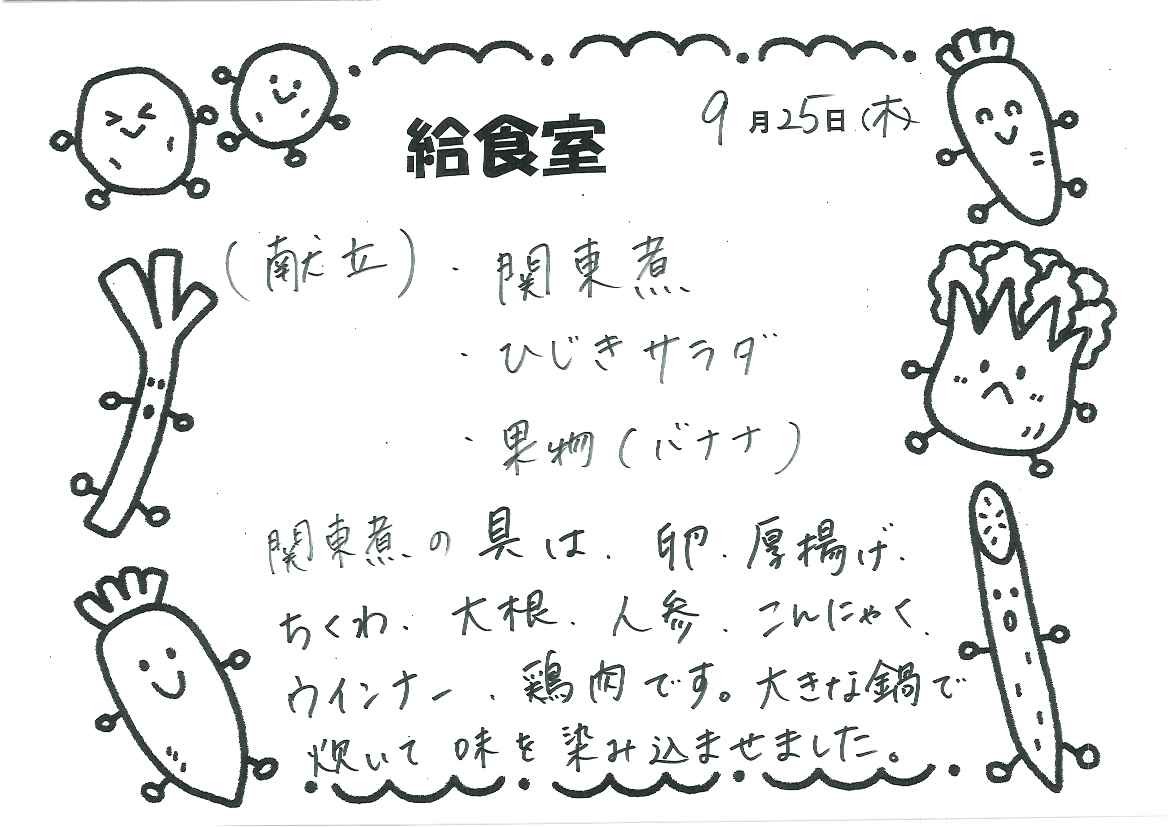 給食室
9月25日(木)
(献立)・関東煮
・ひじきサラダ
・果物(バナナ)
関東煮の具は、卵、厚揚げ、
ちくわ、大根、人参、こんにゃく、
ウインナー、鶏肉です。大きな鍋で
炊いて味を染み込ませました。